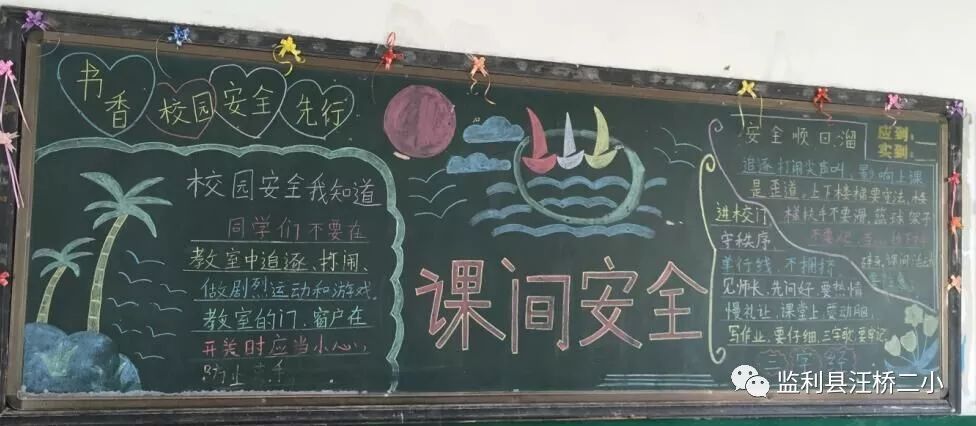 书香校园安全先行
校园安全我知道
同学们不要在
教室中追逐、打闹、
做剧烈运动和游戏.
教室的门、窗户在
开关时应当小心,
防止
课间安全
安全顺口溜
应到:
实到:
追逐打闹尖声叫, 影响上课
是歪道, 上下楼梯要守法, 楼
梯扶手不要滑, 篮球架子
进校门
守秩序,
单行线, 不拥挤
见师长, 先问好
慢礼让, 课堂上, 要动脑,
写作业, 要仔细, 三字歌, 要牢记,
三字经
监利县汪桥二小